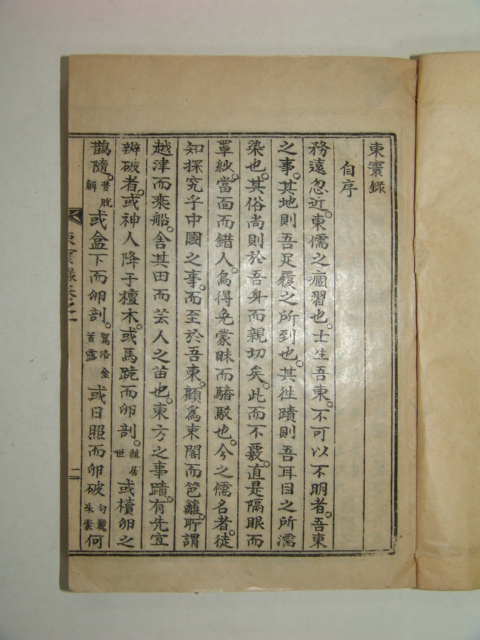 東寰錄
自序
務遠忽近。東儒之痼習也。士生吾東。不可以不明者。吾東
之事。其地則吾足履之所到也。其往蹟則吾耳目之所濡
染也。其俗尚則於吾身而親切矣。此而不覈。直是隔眼而
罩紗。當面而錯人。烏得免蒙昧而馳駁也。今之儒名者。徒
知探究乎中國之事。而至於吾東。顧爲束閣而笆籬。所謂
越津而乘船。舍其田而芸人之苗也。東方之事蹟。有先宜
辨破者。或神人降于檀木。或馬跪而卵剖。赫居世 或櫝卵之
鵲隨。昔脫解 或盒下而卵剖。駕洛金首露 或日照而卵破 句麗朱蒙 何
東寰錄卷之一
二